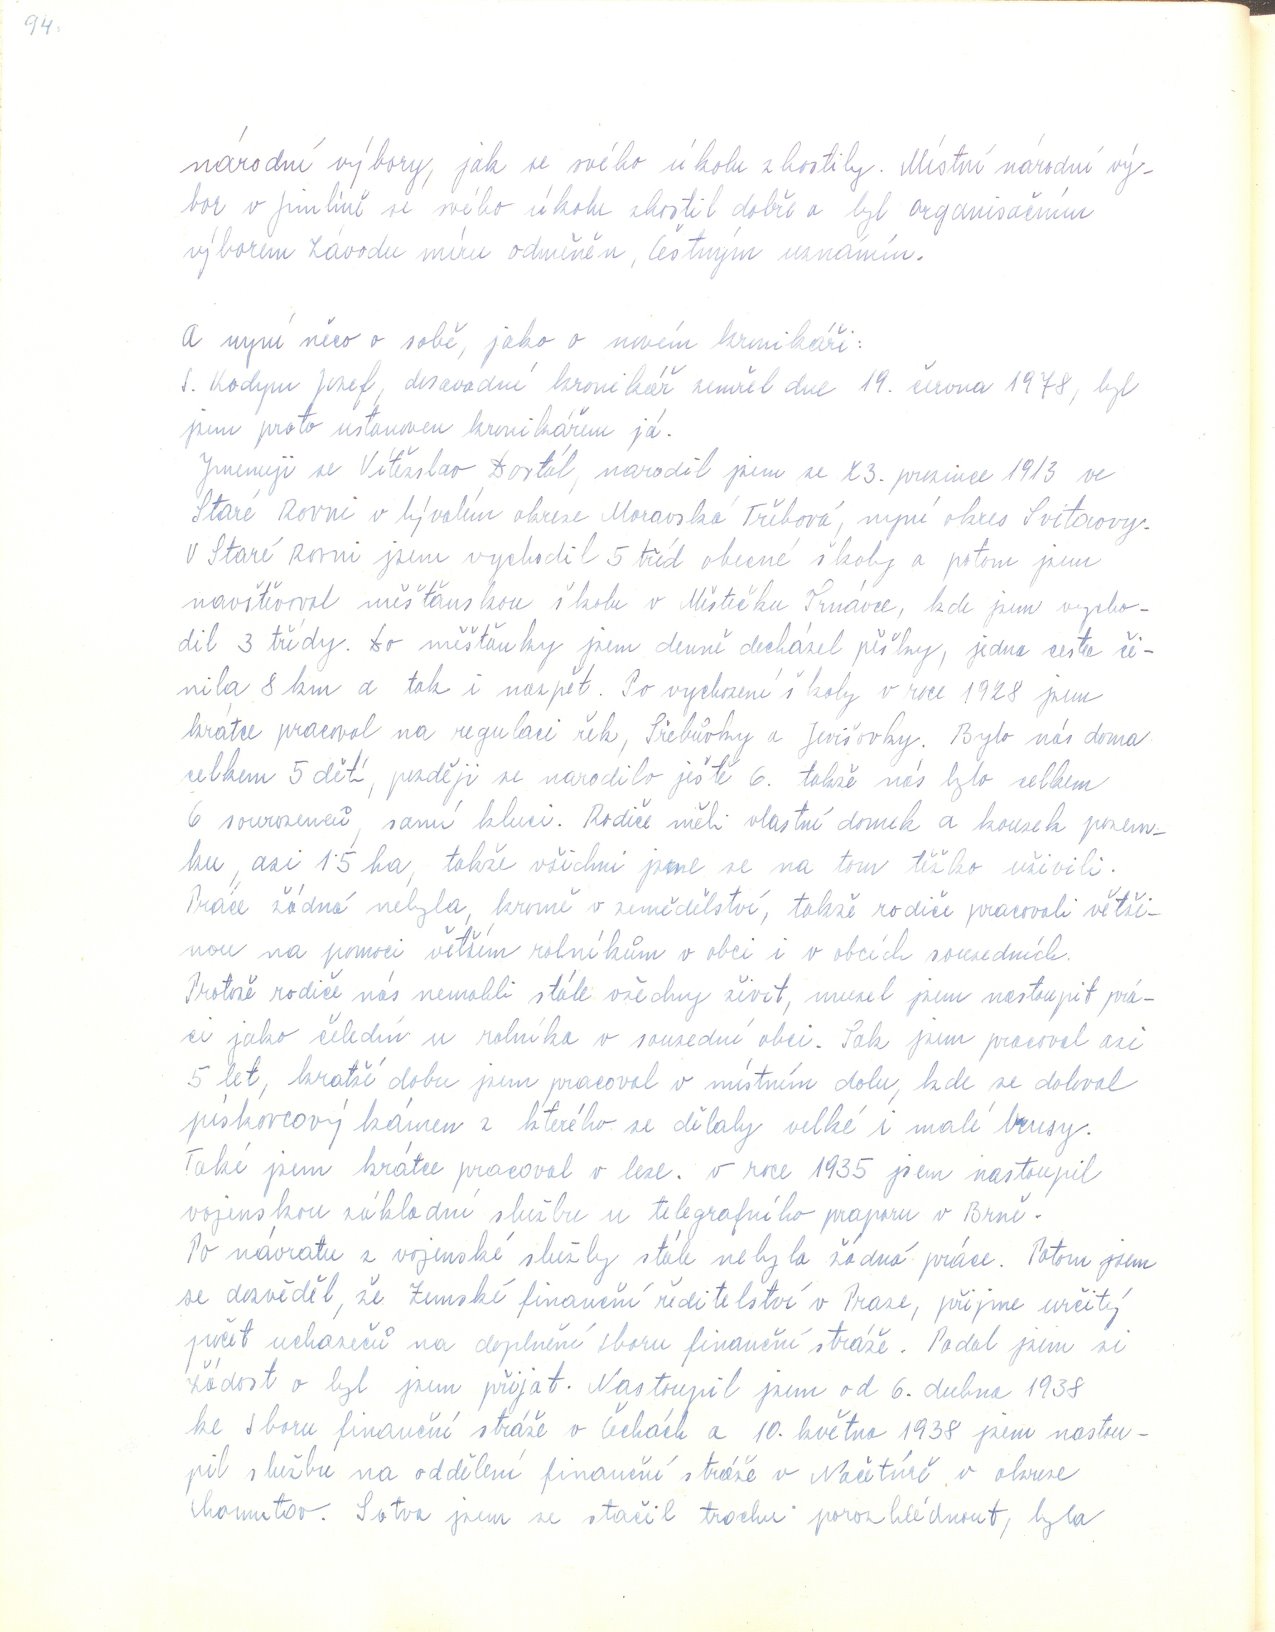 94.
národní výbory, jak se svého úkolu zhostily. Místní národní vý-
bor v Jimlíně se svého úkolu zhostil dobře a byl organisačním
výborem Závodu míru odměněn, Čestným uznáním.
A nyní něco o sobě, jako o novém kronikáři:
S. Kodym Josef, dosavadní kronikář zemřel dne 19. června 1978, byl
jsem proto ustanoven kronikářem já.
Jmenuji se Vítězslav Dostál, narodil jsem se 23. prosince 1913 ve
Staré Rovni v bývalém okrese Moravská Třebová, nyní okres Svitavy.
V Staré Rovni jsem vychodil 5 tříd obecné školy a potom jsem
navštěvoval měšťanskou školu v Městečku Trnávce, kde jsem vycho-
dil 3 třídy. Do měšťanky jsem denně docházel pěšky, jedna cesta či-
nila 8 km a tak i nazpět. Po vychození školy v roce 1928 jsem
krátce pracoval na regulaci řek, Třebůvky a Jevíčovky. Bylo nás doma
celkem 5 dětí, později se narodilo ještě 6. takže nás bylo celkem
6 sourozenců, samí kluci. Rodiče měli vlastní domek a kousek pozem-
ku, asi 1.5 ha, takže všichni jsme se na tom těžko uživili.
Práce žádná nebyla, kromě v zemědělství, takže rodiče pracovali větši-
nou na pomoci větším rolníkům v obci i v obcích sousedních.
Protože rodiče nás nemohli stále všechny živit, musel jsem nastoupit prá-
ci jako čeledín u rolníka v sousední obci. Tak jsem pracoval asi
5 let, kratší dobu jsem pracoval v místním dolu, kde se doloval
pískovcový kámen z kterého se dělaly velké i malé brusy.
Také jsem krátce pracoval v lese. V roce 1935 jsem nastoupil
vojenskou základní službu u telegrafního praporu v Brně.
Po návratu z vojenské služby stále nebyla žádná práce. Potom jsem
se dozvěděl, že Zemské finanční ředitelství v Praze, přijme určitý
počet uchazečů na doplnění sboru finanční stráže. Podal jsem si
žádost a byl jsem přijat. Nastoupil jsem od 6. dubna 1938
ke sboru finanční stráže v Čechách a 10. května 1938 jsem nastou-
pil službu na oddělení finanční stráže v Načetíně v okrese
Chomutov. Sotva jsem se stačil trochu porozhlédnout, byla